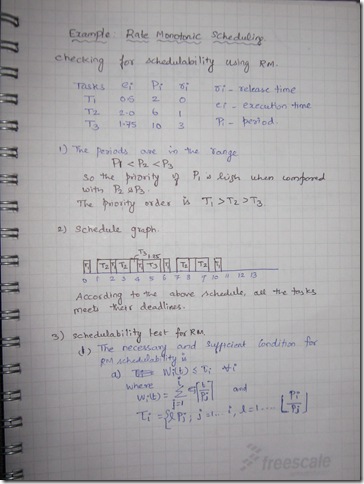 Example: Rate Monotonic Scheduling
checking for schedulability using RM.
Tasks ei Pi ri ri - release time
T1 0.5 2 0 ei - execution time
T2 2.0 6 1 Pi - period.
T3 1.75 10 3
1) The periods are in the range
P1 < P2 < P3
So the priority of P1 is high when compared
with P2 & P3.
The priority order is T1 > T2 > T3.
2) Schedule graph
T3 1.25
T2 T2 T3 T2 T2
0 1 2 3 4 5 6 7 8 9 10 11 12 13
According to the above schedule, all the tasks
meets their deadlines.
3) Schedulability test for RM.
The necessary and sufficient condition for
RM schedulability is
a) Wi(t) ≤ τi ∀i
where
Wi(t) = Σ j=1 i ej ⌈t/Pj⌉ and
τi = {lPj; j=1... i, l=1.... ⌊Pi/Pj⌋
freescale